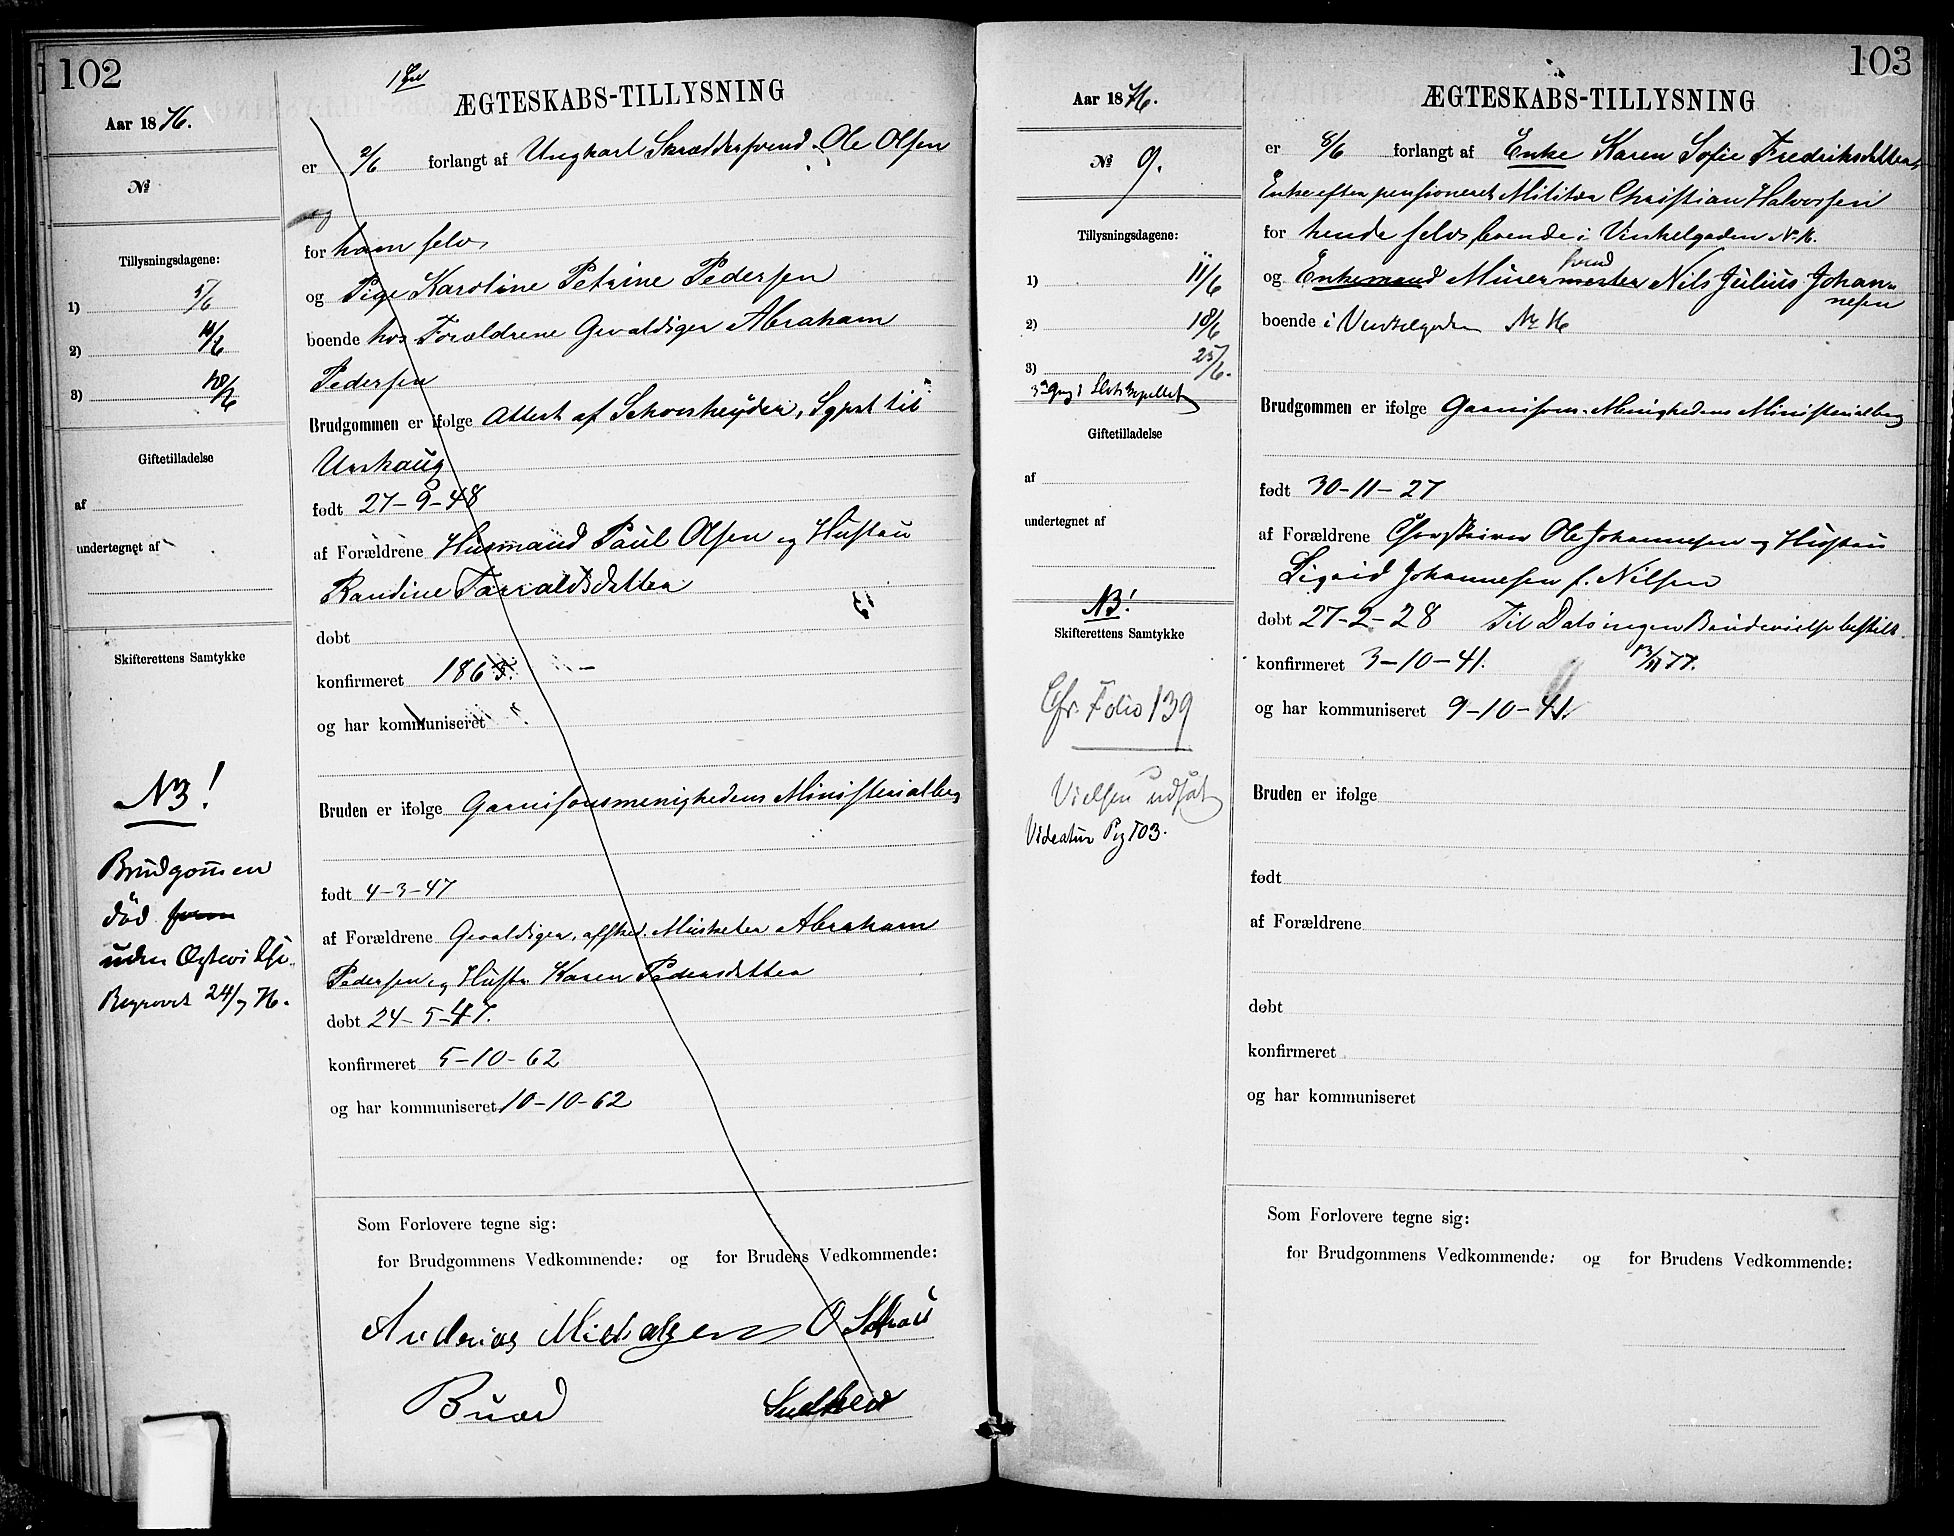 102
1ste
Aar 1876.
№
Tillysningsdagene:
1) 5/6
2) 11/6
3) 18/6
Giftetilladelse
af
undertegnet af
Skifterettens Samtykke
NB!
Brudgommen
død
uden Ægtevielse.
Begravet 24/7 76.
ÆGTESKABS-TILLYSNING
er 2/6 forlangt af Ungkarl Skræddersvend Ole Olsen
for ham selv
og Pige Karoline Petrine Pedersen
boende hos Forældrene Gevaldiger Abraham
Pedersen
Brudgommen er ifølge Attest af
født 27-9-48
af Forældrene Husmand Paul Olsen og Hustru
Randine Tarraldsdatter
døbt
konfirmeret 1865.
og har kommuniseret
Bruden er ifølge Garnisonsmenighedens Ministerialbog
født 4-3-47
af Forældrene Gevaldiger, afsked. Musketer Abraham
Pedersen og Hustr Karen Pedersdatter
døbt 24-5-47.
konfirmeret 5-10-62
og har kommuniseret 10-10-62
Som Forlovere tegne sig:
for Brudgommens Vedkommende: og for Brudens Vedkommende:
103
Aar 1876.
№ 9.
Tillysningsdagene:
1) 11/6
2) 18/6
3) 25/6.
3die Gang i Slotskapellet
Giftetilladelse
af
undertegnet af
NB!
Skifterettens Samtykke
Cfr. Folio 139
Vielsen udsat
Videatur Pag 103.
ÆGTESKABS-TILLYSNING
er 8/6 forlangt af Enke Karen Sofie Fredriksdatter,
Enke efter pensioneret Militær Christian Halvorsen
for hende selv boende i Vinkelgaden N. 16.
svend
og Enkemand Murermester Nils Julius Johan-
nesen
boende i Vinkelgaden Nr 16
Brudgommen er ifølge Garnisons-Menighedens Ministerialbog
født 30-11-27
af Forældrene Ole Johannesen og Hustru
Sigrid Johannesen f. Nilsen
døbt 27-2-28 Til
konfirmeret 3-10-41. 13/11 77.
og har kommuniseret 9-10-41.
Bruden er ifølge
født
af Forældrene
døbt
konfirmeret
og har kommuniseret
Som Forlovere tegne sig:
for Brudgommens Vedkommende: og for Brudens Vedkommende: